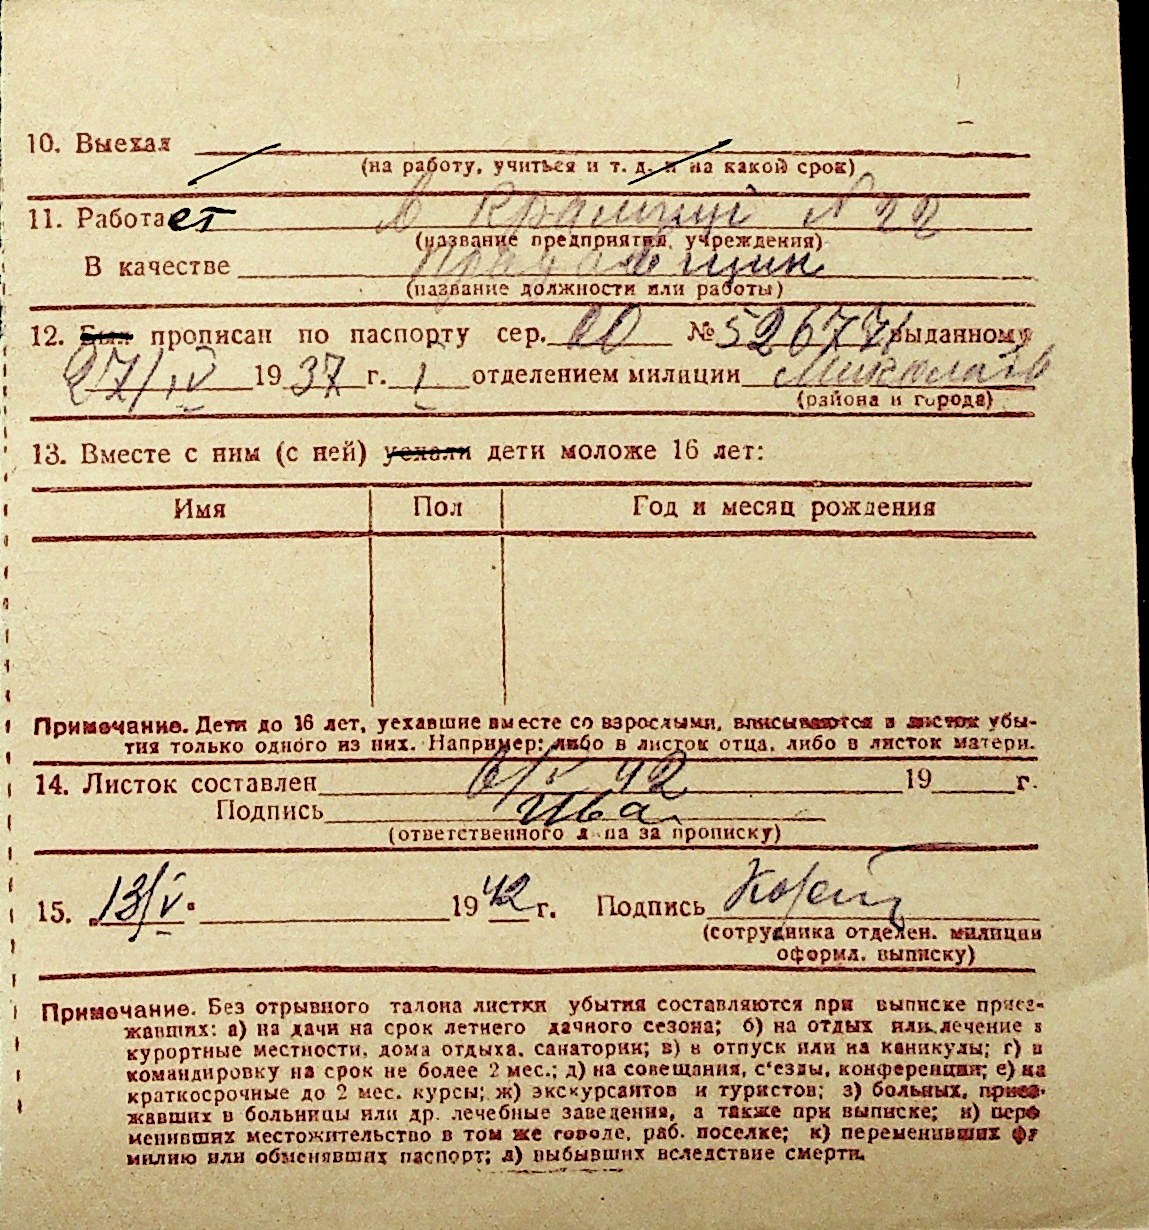 10. Выехал
(на работу, учиться и т. д. и на какой срок)
11. Работает в № 22
(название предприятия, учреждения)
В качестве
(название должности или работы)
12. Был прописан по паспорту сер. № 526771 выданному
27/IV 1937 г. I отделением милиции
(района и города)
13. Вместе с ним (с ней) уехали дети моложе 16 лет:
Имя Пол Год и месяц рождения
Примечание. Дети до 16 лет, уехавшие вместе со взрослыми, вписываются в листок убы-
тия только одного из них. Например: либо в листок отца, либо в листок матери.
14. Листок составлен 6/V 42 19 г.
Подпись Ива
(ответственного лица за прописку)
15. „13/V" 1942 г. Подпись
(сотрудника отделен. милиции
оформл. выписку)
Примечание. Без отрывного талона листки убытия составляются при выписке приез-
жавших: а) на дачи на срок летнего дачного сезона; б) на отдых или лечение в
курортные местности, дома отдыха, санатории; в) в отпуск или на каникулы; г) в
командировку на срок не более 2 мес.; д) на совещания, с'езды, конференции; е) на
краткосрочные до 2 мес. курсы; ж) экскурсантов и туристов; з) больных, приез-
жавших в больницы или др. лечебные заведения, а также при выписке; и) пере
менивших местожительство в том же городе, раб. поселке; к) переменивших фа
милию или обменявших паспорт; л) выбывших вследствие смерти.